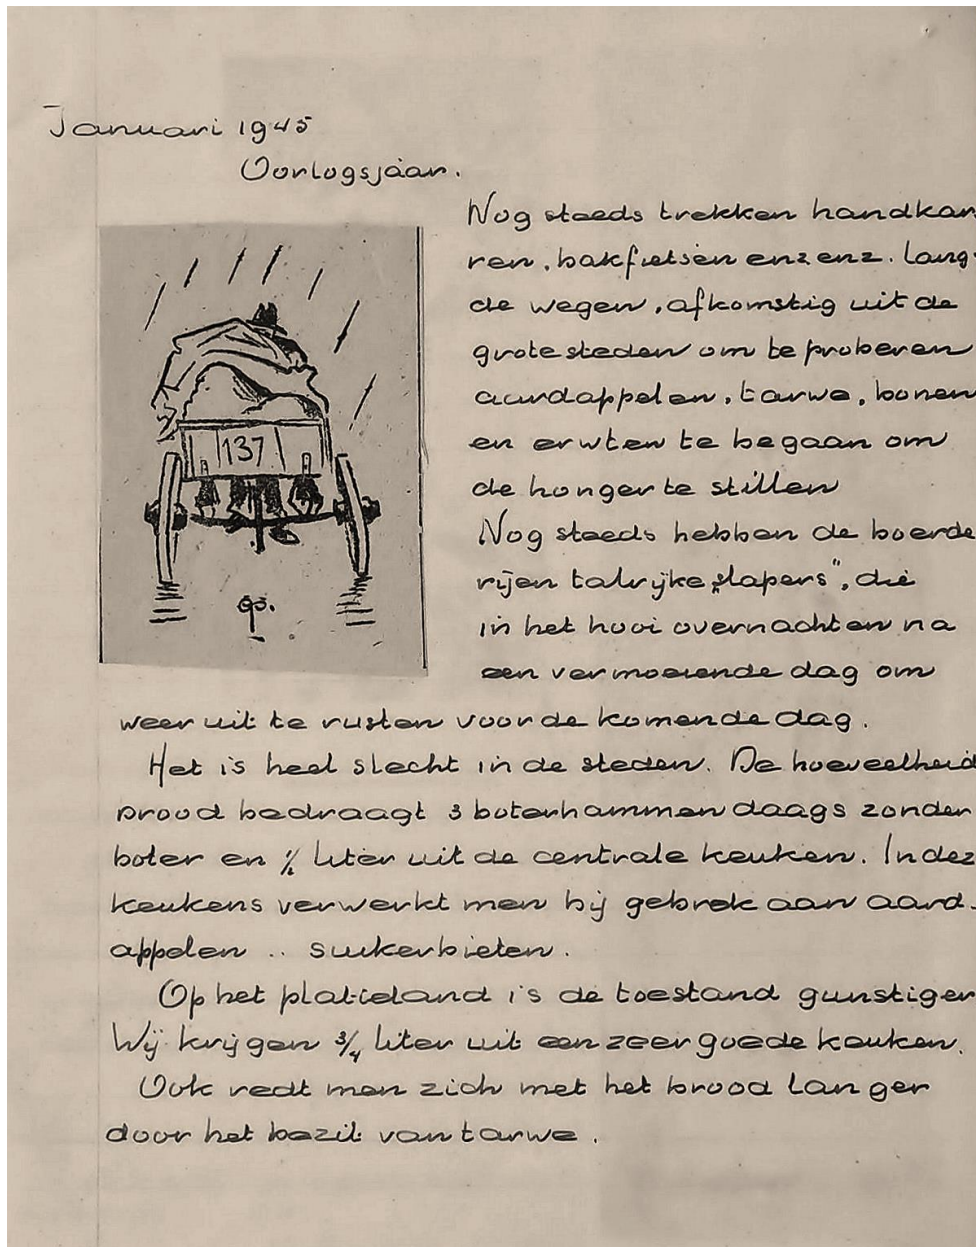 Januari 1945
Oorlogsjaar.
Nog steeds trekken handkar
ren, bakfietsen enz enz. lang
de wegen, afkomstig uit de
grote steden om te proberen
aardappelen, tarwe, bonen
137
en erwten te begaan om
de honger te stillen
Nog steeds hebben de boerde
rijen talrijke „slapers", die
in het hooi overnachten na
een vermoeiende dag om
weer uit te rusten voor de komende dag.
Het is heel slecht in de steden. De hoeveelheid
brood bedraagt 3 boterhammen daags zonder
boter en ½ liter uit de centrale keuken. In dez
keukens verwerkt men bij gebrek aan aard-
appelen .. suikerbieten.
Op het platteland is de toestand gunstiger
Wij krijgen ¾ liter uit een zeer goede keuken.
Ook redt men zich met het brood langer
door het bezit van tarwe.